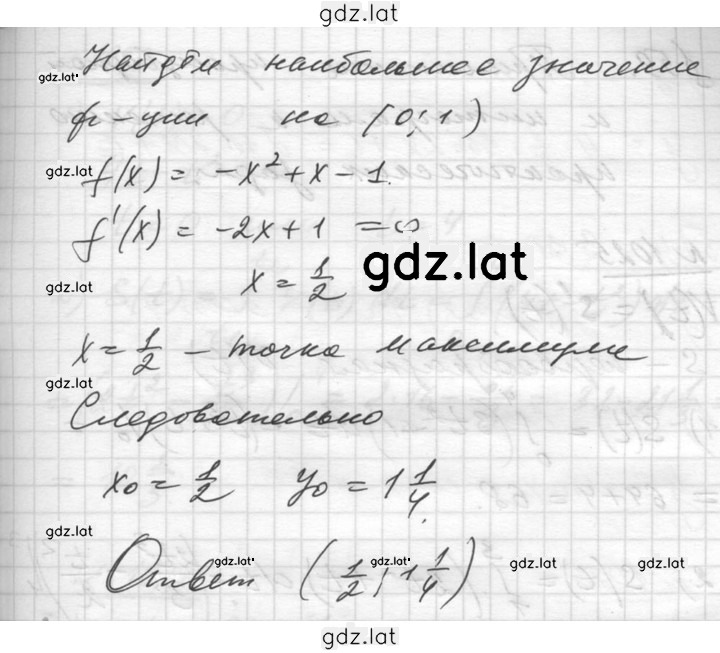 gdz.lat
Найдём наибольшее значение
gdz.lat
ф-ции на (0; 1)
gdz.lat
f(x) = -x² + x - 1.
f'(x) = -2x + 1 = 0
gdz.lat
x = 1/2
gdz.lat
x = 1/2 - точка максимума
gdz.lat
Следовательно
x₀ = 1/2 y₀ = 1 1/4.
gdz.lat
Ответ (1/2; 1 1/4)
gdz.lat gdz.lat gdz.lat gdz.lat
gdz.lat